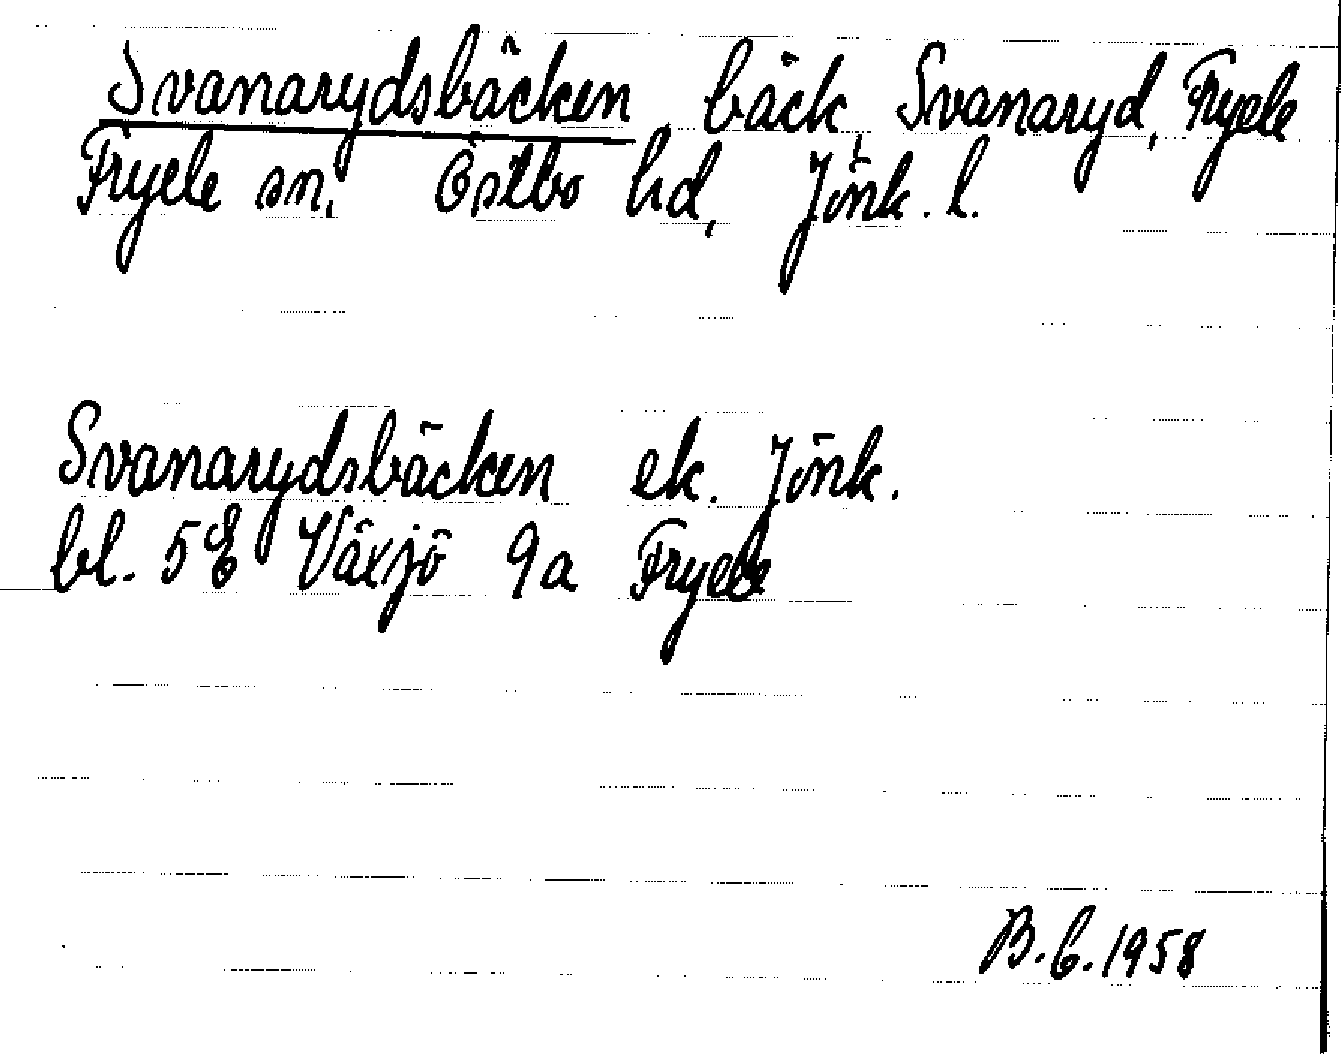 Svanarydsbäcken, bäck, Svanaryd, Fryele
Fryele sn, Östbo hd, Jönk. l.
Svanarydsbäcken ek. Jönk.
bl. 5E Växjö 9a Fryele
B.G. 1958